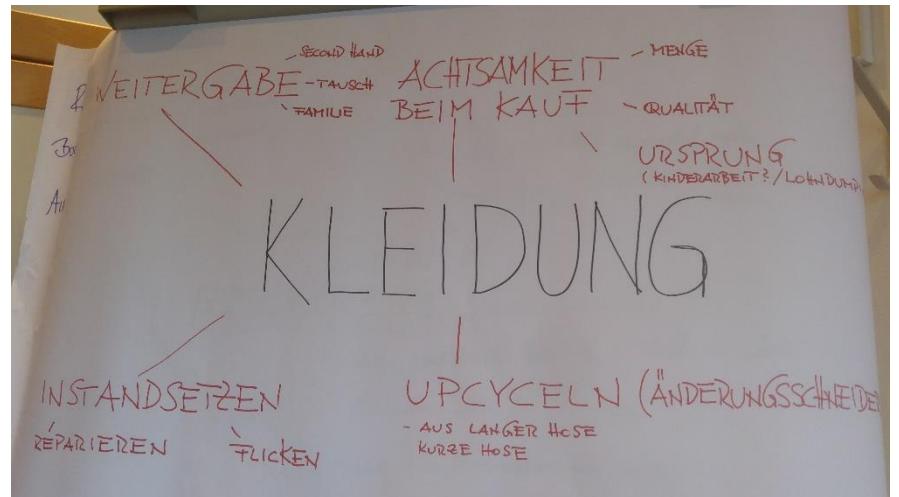 WEITERGABE
- SECOND HAND
- TAUSCH
- FAMILIE
ACHTSAMKEIT
BEIM KAUF
- MENGE
- QUALITÄT
URSPRUNG
(KINDERARBEIT?/LOHNDUMP
KLEIDUNG
INSTANDSETZEN
REPARIEREN
FLICKEN
UPCYCELN (ÄNDERUNGSSCHNEIDE
- AUS LANGER HOSE
KURZE HOSE